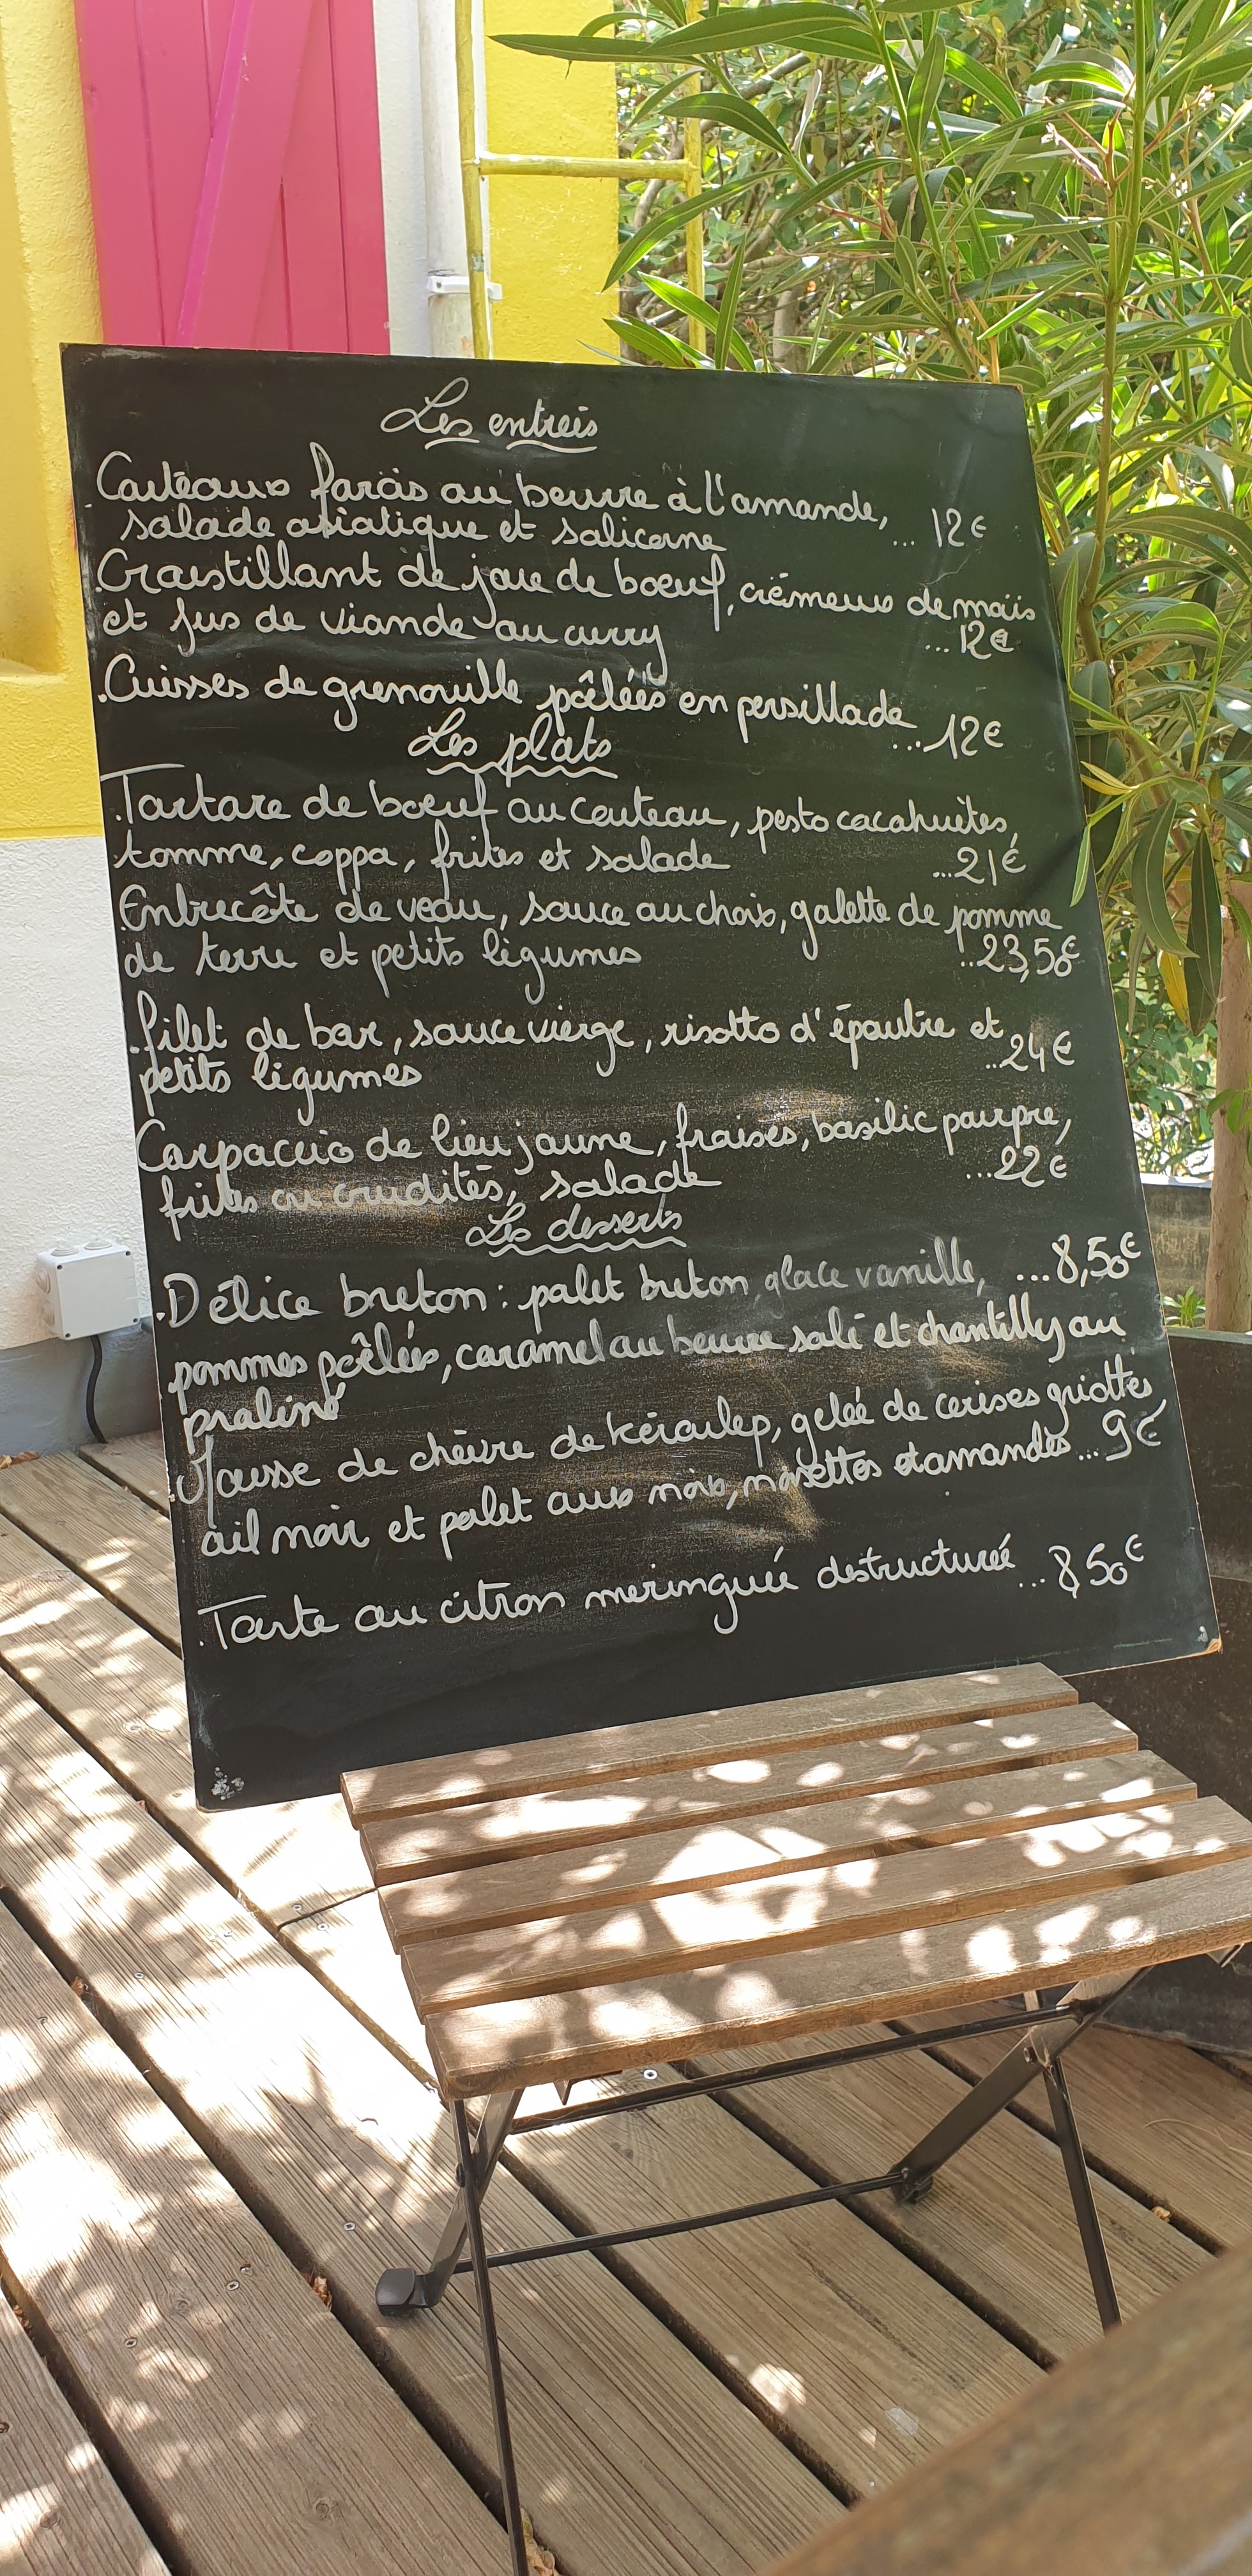 Les entrées
Couteaux farcis au beurre à l'amande,
salade asiatique et salicorne ... 12€
.Croustillant de joue de boeuf, crémeux de maïs
et jus de viande au curry ...12€
.Cuisses de grenouille pôelées en persillade ...12€
Les plats
.Tartare de boeuf au couteau, pesto cacahuètes,
tomme, coppa, frites et salade ...21€
.Entrecôte de veau, sauce au choix, galette de pomme
de terre et petits légumes ..23,50€
.filet de bar, sauce vierge, risotto d'épautre et
petits légumes ...24€
Carpaccio de lieu jaune, fraises, basilic pourpre,
frites ou crudités, salade ...22€
Les desserts
.Délice breton : palet breton, glace vanille, ...8,50€
pommes pôelées, caramel au beurre salé et chantilly au
praliné
.Mousse de chèvre de Kéroulep, gelée de cerises griottes
ail noir et palet aux noix, noisettes et amandes... 9€
.Tarte au citron meringuée destructurée ... 8 50€